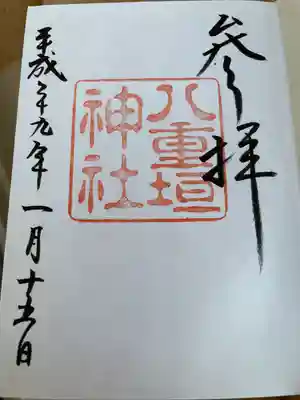 参拝
八重垣
神社
平成二十九年一月十五日